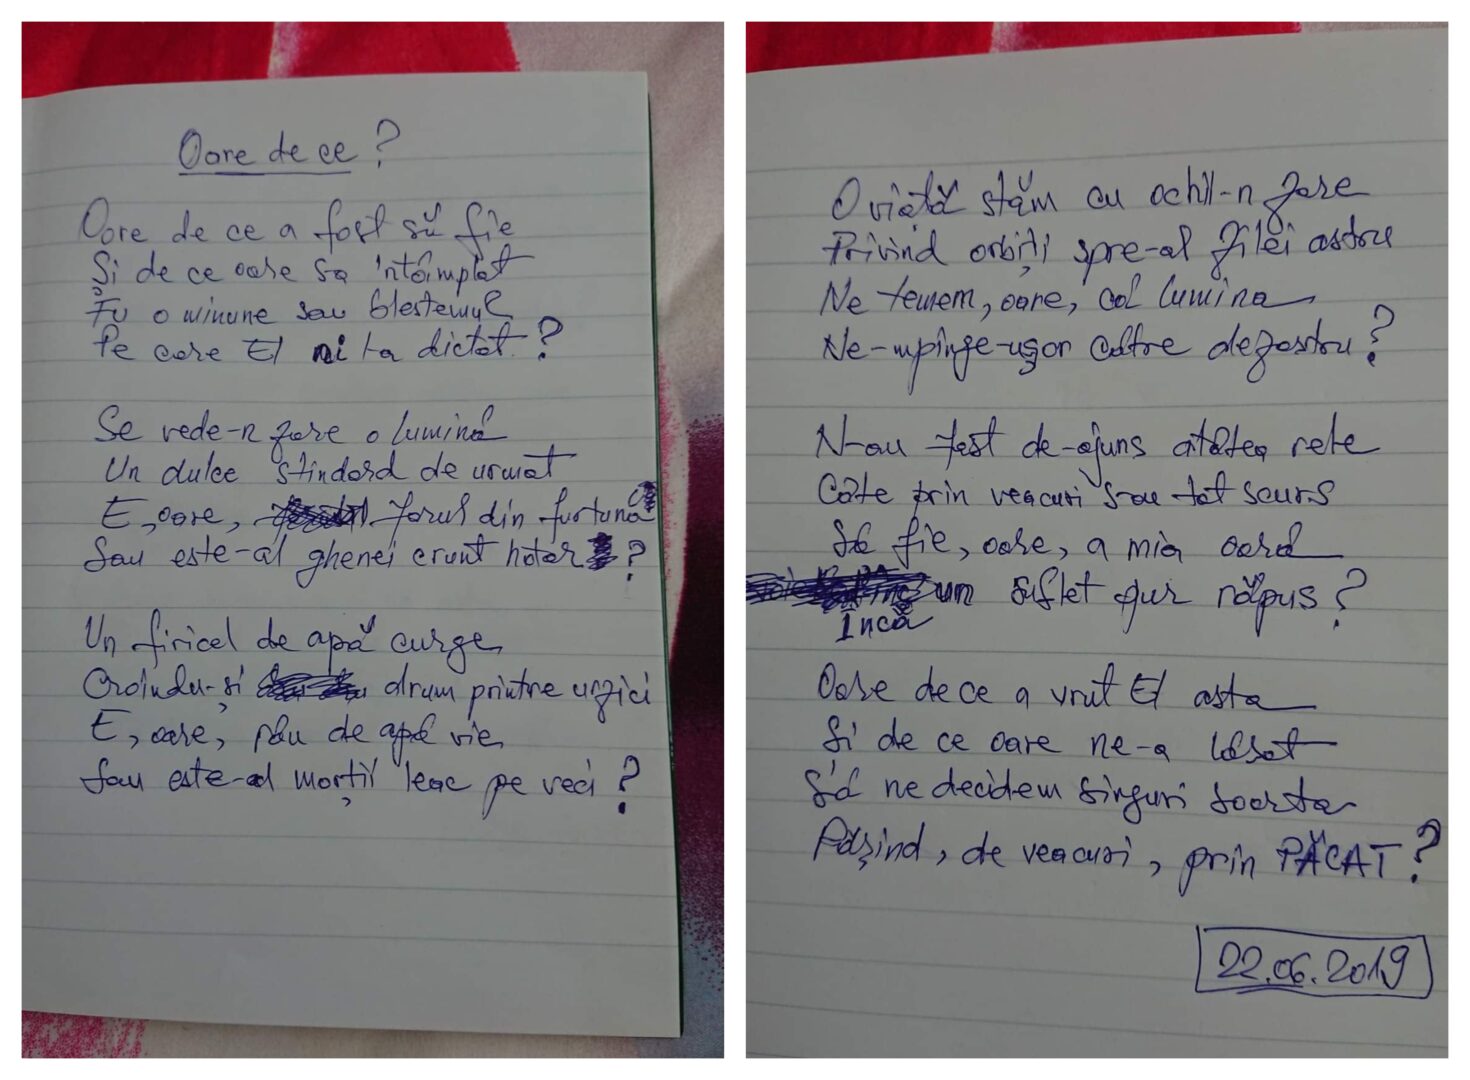 Oare de ce?
Oare de ce a fost să fie
Și de ce oare sa întâmplat
Fu o minune sau blestemul
Pe care El ni la dictat?
Se vede-n zare o lumină
Un dulce stindard de urmat
E, oare, farul din furtună
Sau este-al ghenei crunt hotar?
Un firicel de apă curge
Croindu-și drum printre urzici
E, oare, râu de apă vie
Sau este-al morții leac pe veci?
O viață stăm cu ochii-n zare
Privind orbiți spre-al zilei astru
Ne temem, oare, că lumina
Ne-mpinge-ușor către dezastru?
N-au fost de-ajuns atâtea rele
Câte prin veacuri s-au tot scurs
Să fie, oare, a mia oară
Încă un suflet pur răpus?
Oare de ce a vrut El asta
Si de ce oare ne-a lăsat
Să ne decidem singuri soarta
Pășind, de veacuri, prin PĂCAT?
22.06.2019